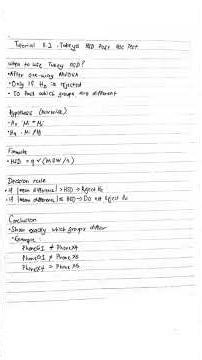 Tutorial 8.2 : Tukey's HSD Post Hoc Test
When to use Tukey HSD?
• After one-way ANOVA
• Only if H₀ is rejected
• To find which groups are different
Hypothesis (pairwise)
• H₀ : Mi = Mj
• Ha : Mi ≠ Mj
Formula
• HSD = q √(MSW/n)
Decision rule
• If |mean difference| > HSD → Reject H₀
• If |mean difference| ≤ HSD → Do not Reject H₀
Conclusion
• Show exactly which groups differ
• Example
Phone G1 ≠ Phone X4
Phone G1 ≠ Phone X5
Phone X4 = Phone X5